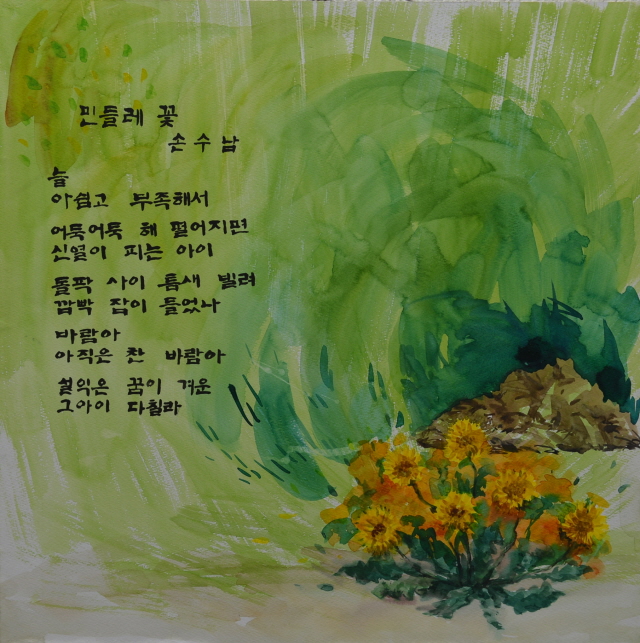 민들레 꽃
손수남
늘
아쉽고 부족해서
어둑어둑 해 떨어지면
신열이 피는 아이
돌짝 사이 틈새 빌려
깜빡 잠이 들었나
바람아
아직은 찬 바람아
설익은 꿈이 겨운
그아이 다칠라